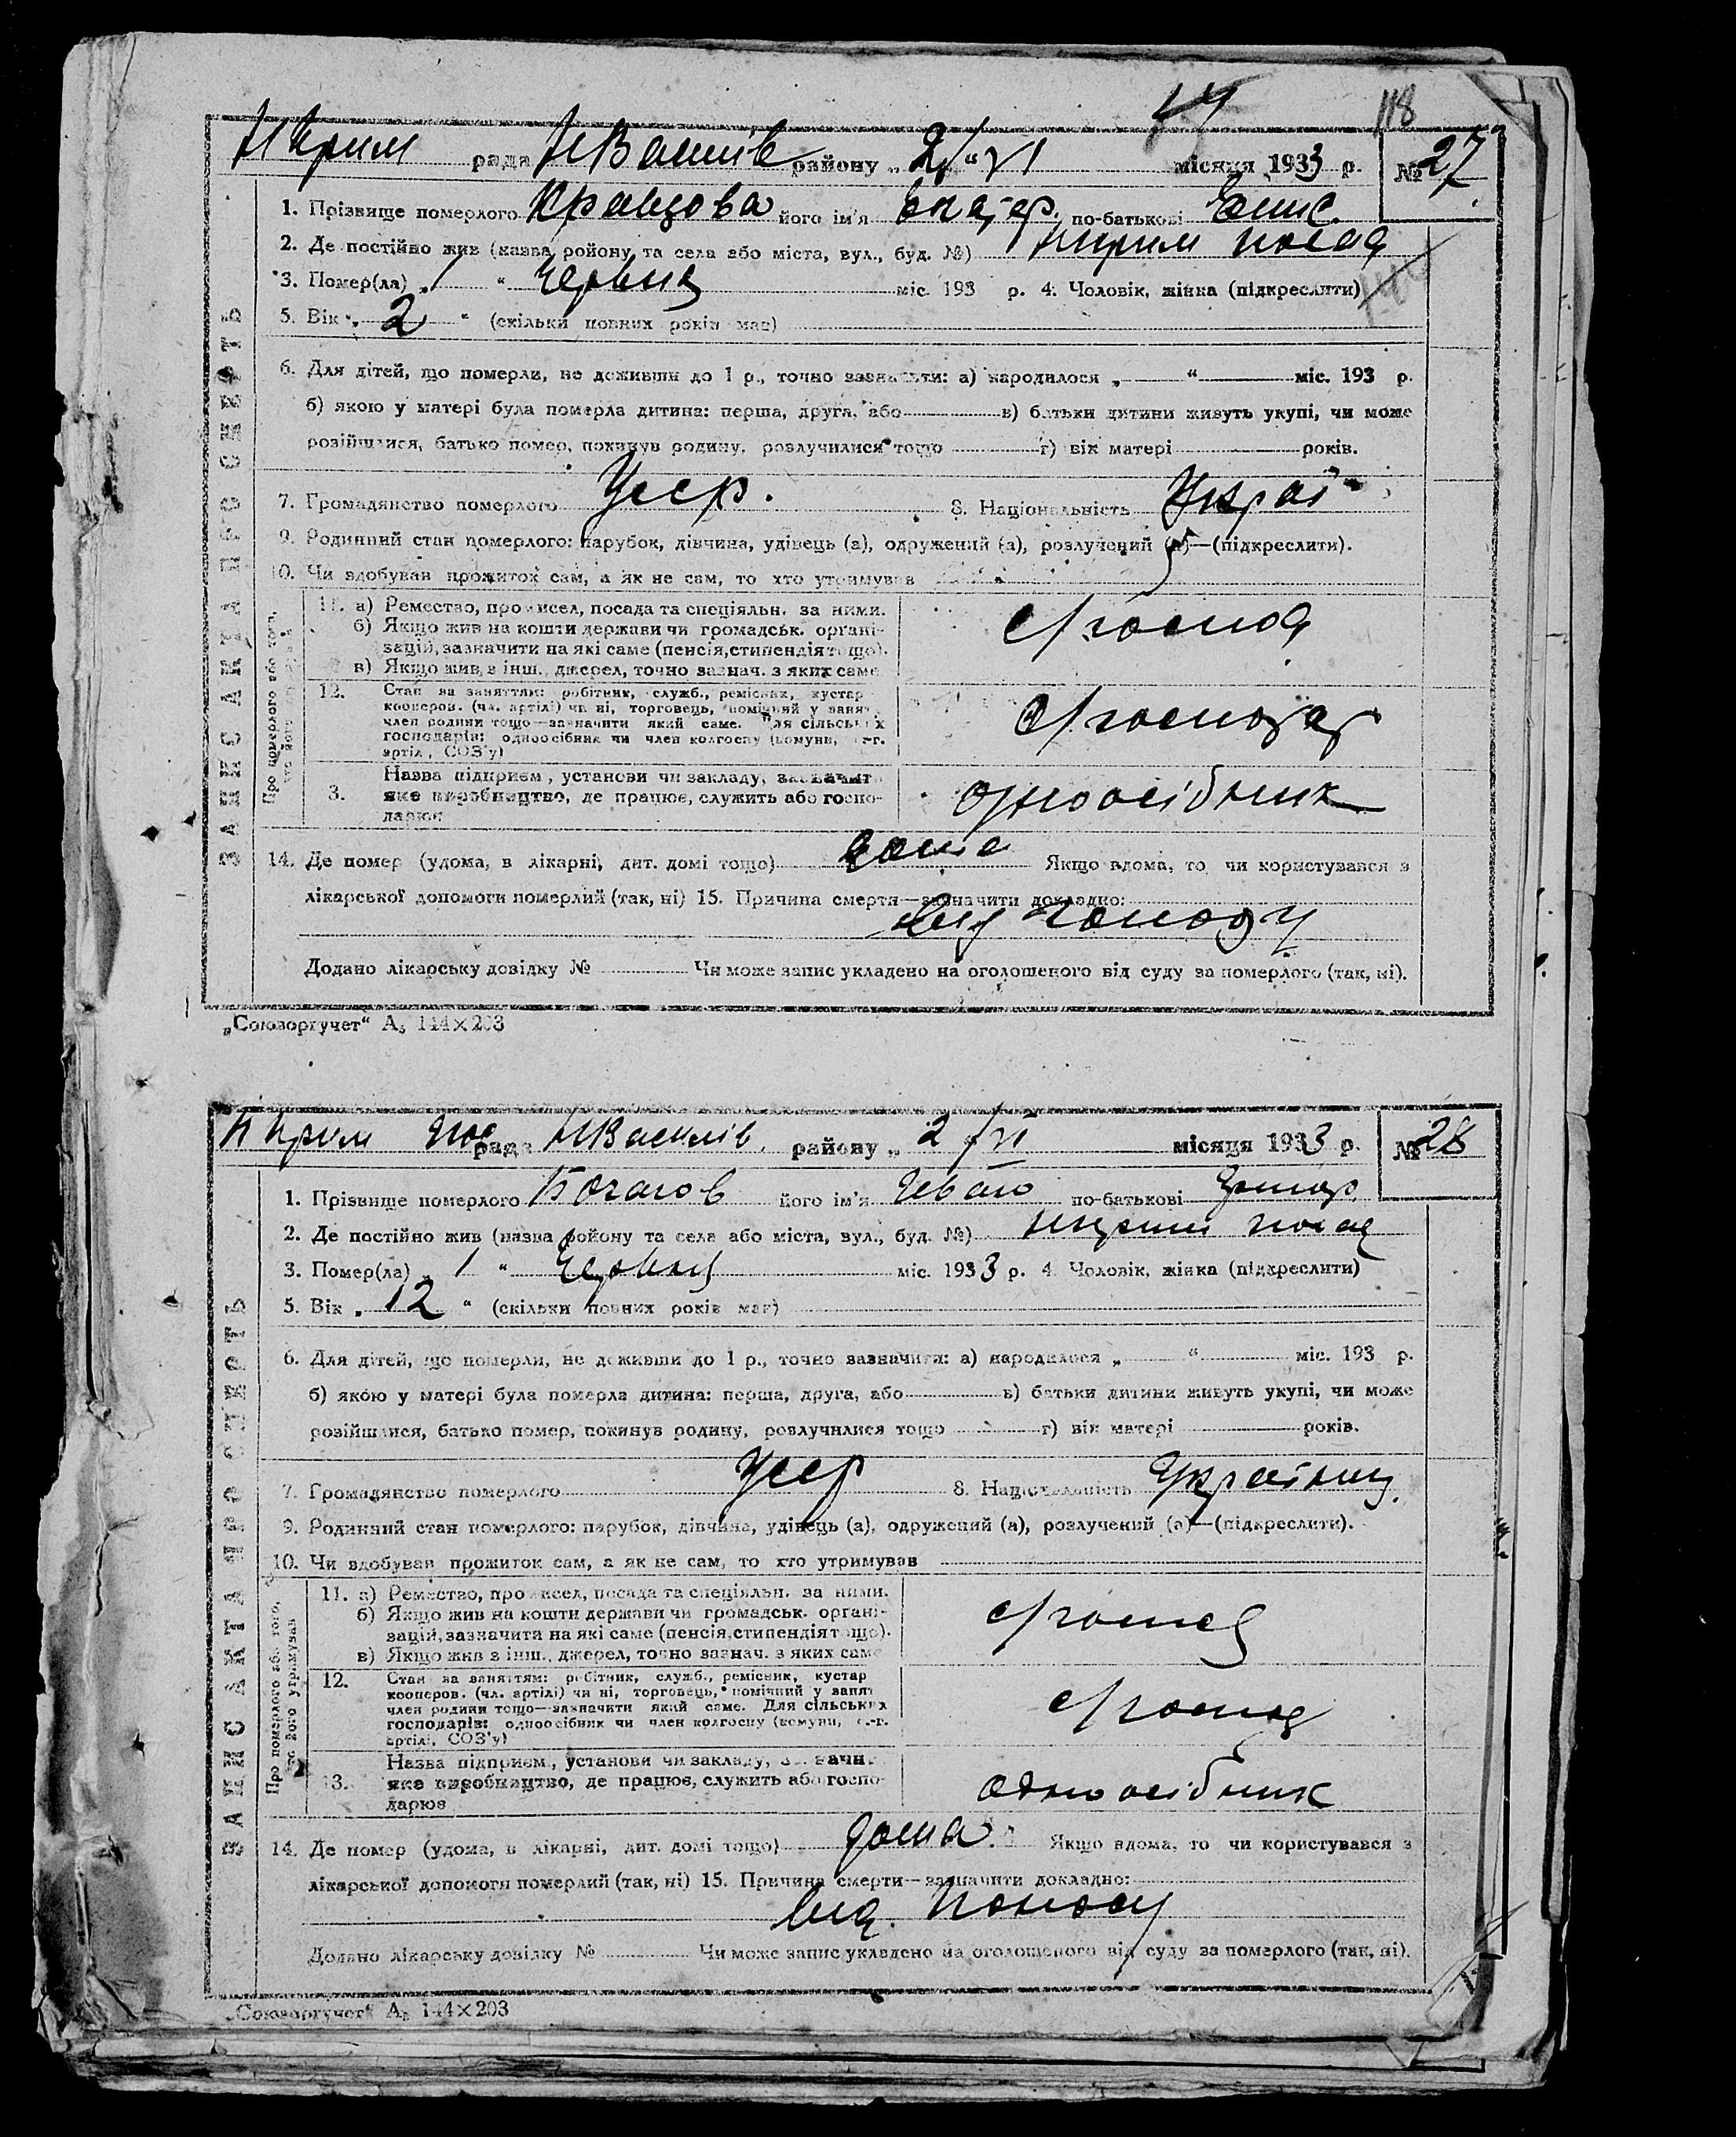 118
Н Крим рада Н Василів району „ 2 “ VI місяця 1933 р. № 27
ЗАПИС АКТА ПРО СМЕРТЬ
1. Прізвище померлого Кравцова його ім'я Екатер. по-батькові
2. Де постійно жив (назва району, та села або міста, вул., буд. №) Нкрим посад
3. Помер(ла) „ 1 “ Червня міс. 193 р. 4. Чоловік, жінка (підкреслити)
5. Вік „ 2 “ (скільки повних років мав)
6. Для дітей, що померли, не доживши до 1 р., точно зазначити: а) народилося „ “ міс. 193 р.
б) якою у матері була померла дитина: перша, друга, або в) батьки дитини живуть укупі, чи може
розійшлися, батько помер, покинув родину, розлучилися тощо г) вік матері років.
7. Громадянство померлого Усср. 8. Національність Украї
9. Родинний стан померлого: парубок, дівчина, удівець (а), одружений (а), розлучений (а)—(підкреслити).
10. Чи здобував прожиток сам, а як не сам, то хто утримував
Про померлого або того, хто його утримував
11. а) Ремество, промисел, посада та спеціяльн. за ними.
б) Якщо жив на кошти держави чи громадськ. органі-
зацій, зазначити на які саме (пенсія, стипендія тощо).
в) Якщо жив з інш., джерел, точно зазнач. з яких саме
с/господ
12. Стан за заняттям: робітник, служб., ремісник, кустар
кооперов. (чл. артілі) чи ні, торговець, помічний у занят.
член родини тощо—зазначити який саме. Для сільських
господарів: одноосібник чи член колгоспу (комуни, с.-г.
артілі, СОЗ'у)
с/господар
13. Назва підприєм., установи чи закладу, зазначити
яке виробництво, де працює, служить або госпо-
дарює
одноосібник
14. Де помер (удома, в лікарні, дит. домі тощо) дома Якщо вдома, то чи користувався з
лікарської допомоги померлий (так, ні) 15. Причина смерти—зазначити докладно:
Від голоду
Додано лікарську довідку № Чи може запис укладено на оголошеного від суду за померлого (так, ні).
„Союзоргучет“ А₅ 144×203
Н Крим пос рада Н Василів. району „ 2 “ VI місяця 1933 р. № 28
ЗАПИС АКТА ПРО СМЕРТЬ
1. Прізвище померлого його ім'я Іван по-батькові Григор
2. Де постійно жив (назва району та села або міста, вул., буд. №) Нкрим посад
3. Помер(ла) „ 1 “ Червня міс. 1933 р. 4. Чоловік, жінка (підкреслити)
5. Вік „ 12 “ (скільки повних років мав)
6. Для дітей, що померли, не доживши до 1 р., точно зазначити: а) народилося „ “ міс. 193 р.
б) якою у матері була померла дитина: перша, друга, або в) батьки дитини живуть укупі, чи може
розійшлися, батько помер, покинув родину, розлучилися тощо г) вік матері років.
7. Громадянство померлого Усср 8. Національність
9. Родинний стан померлого: парубок, дівчина, удівець (а), одружений (а), розлучений (а)—(підкреслити).
10. Чи здобував прожиток сам, а як не сам, то хто утримував
Про померлого або того, хто його утримував
11. а) Ремество, промисел, посада та спеціяльн. за ними.
б) Якщо жив на кошти держави чи громадськ. органі-
зацій, зазначити на які саме (пенсія, стипендія тощо).
в) Якщо жив з інш., джерел, точно зазнач. з яких саме
с/господ
12. Стан за заняттям: робітник, служб., ремісник, кустар
кооперов. (чл. артілі) чи ні, торговець, помічний у занят
член родини тощо—зазначити який саме. Для сільських
господарів: одноосібник чи член колгоспу (комуни, с.-г.
артілі, СОЗ'у)
с/господ
13. Назва підприєм., установи чи закладу, зазначити
яке виробництво, де працює, служить або госпо-
дарює
одноосібник
14. Де помер (удома, в лікарні, дит. домі тощо) дома. Якщо вдома, то чи користувався з
лікарської допомоги померлий (так, ні) 15. Причина смерти—зазначити докладно:
Від. поносу
Додано лікарську довідку № Чи може запис укладено на оголошеного від суду за померлого (так, ні).
„Союзоргучет“ А₅ 144×203